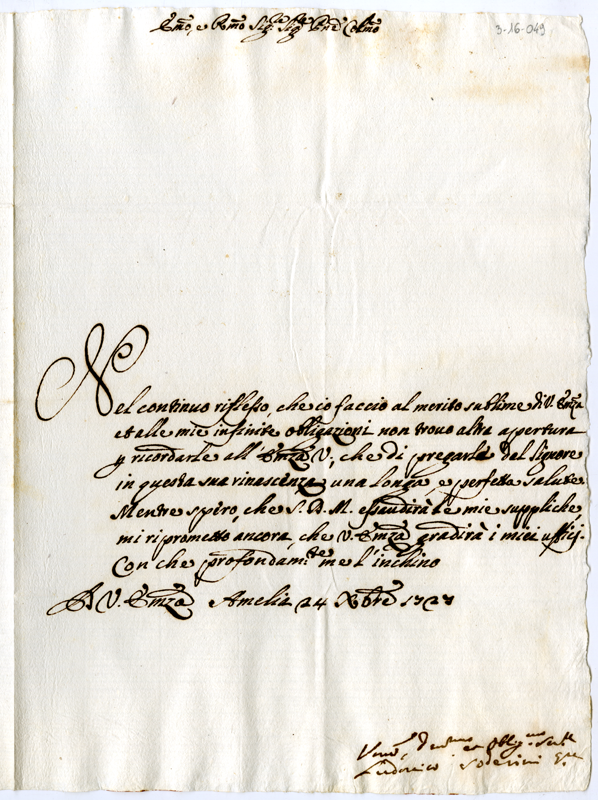 Emo, e Rmo Sig.re Sig.r Pne Colmo
3-16-049
Nel continuo riflesso, che io faccio al merito sublime di V. Emza
et alle mie infinite obligazioni non trovo altra apertura
p ricordarle all' Emza V; che di pregarle del Signore
in questa sua rinascenza una longa, e perfetta salute.
Mentre spero, che S. D. M. essaudirà le mie suppliche
mi riprometto ancora, che V. Emza gradirà i miei uffici.
Con che profondam.te me l'inchino
D V. Emza Amelia 24 Xbre 1727
Umo, Devmo et Obligmo Serre
Ludovico Soderini